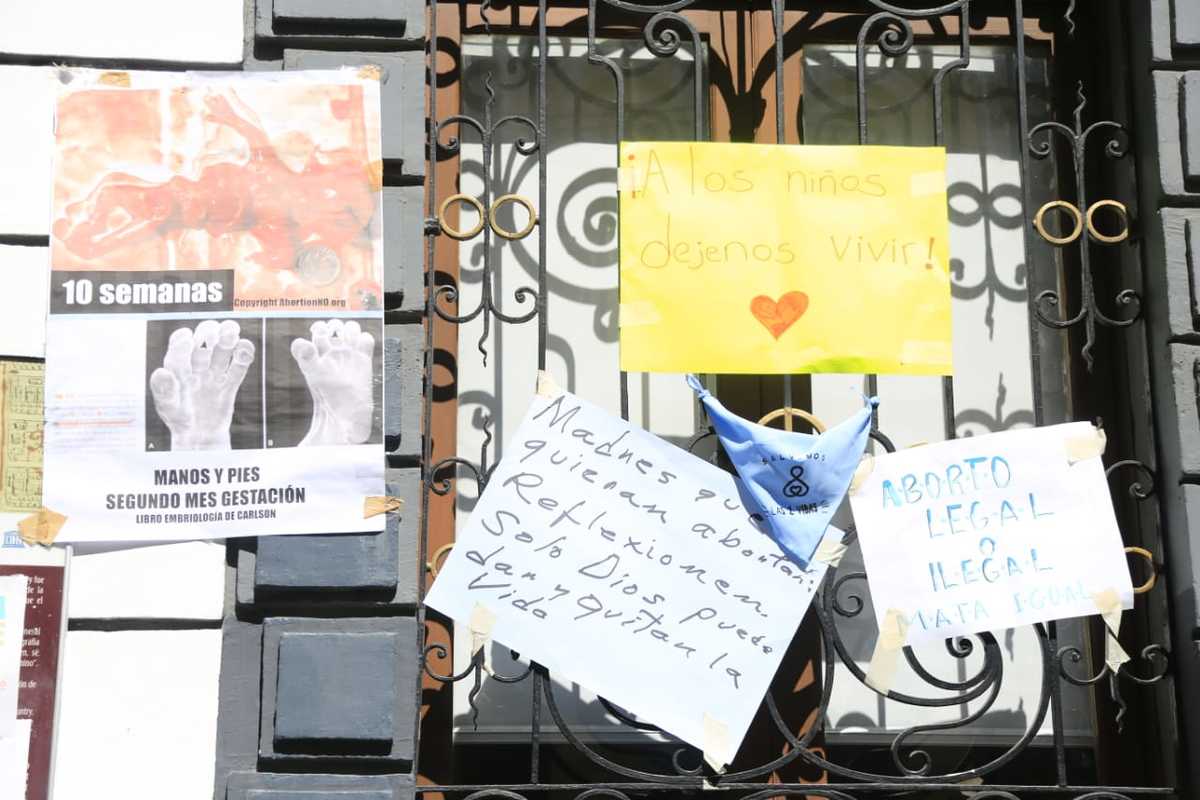 10 semanas
Copyright AbortionNO.org
A
B
MANOS Y PIES
SEGUNDO MES GESTACIÓN
LIBRO EMBRIOLOGÍA DE CARLSON
¡A los niños
dejenos vivir!
Madres que
quieran abortar:
Reflexionen.
Solo Dios puede
dar y quitar la
Vida
LAS 2 VIDAS
ABORTO
LEGAL
O
ILEGAL
MATA IGUAL